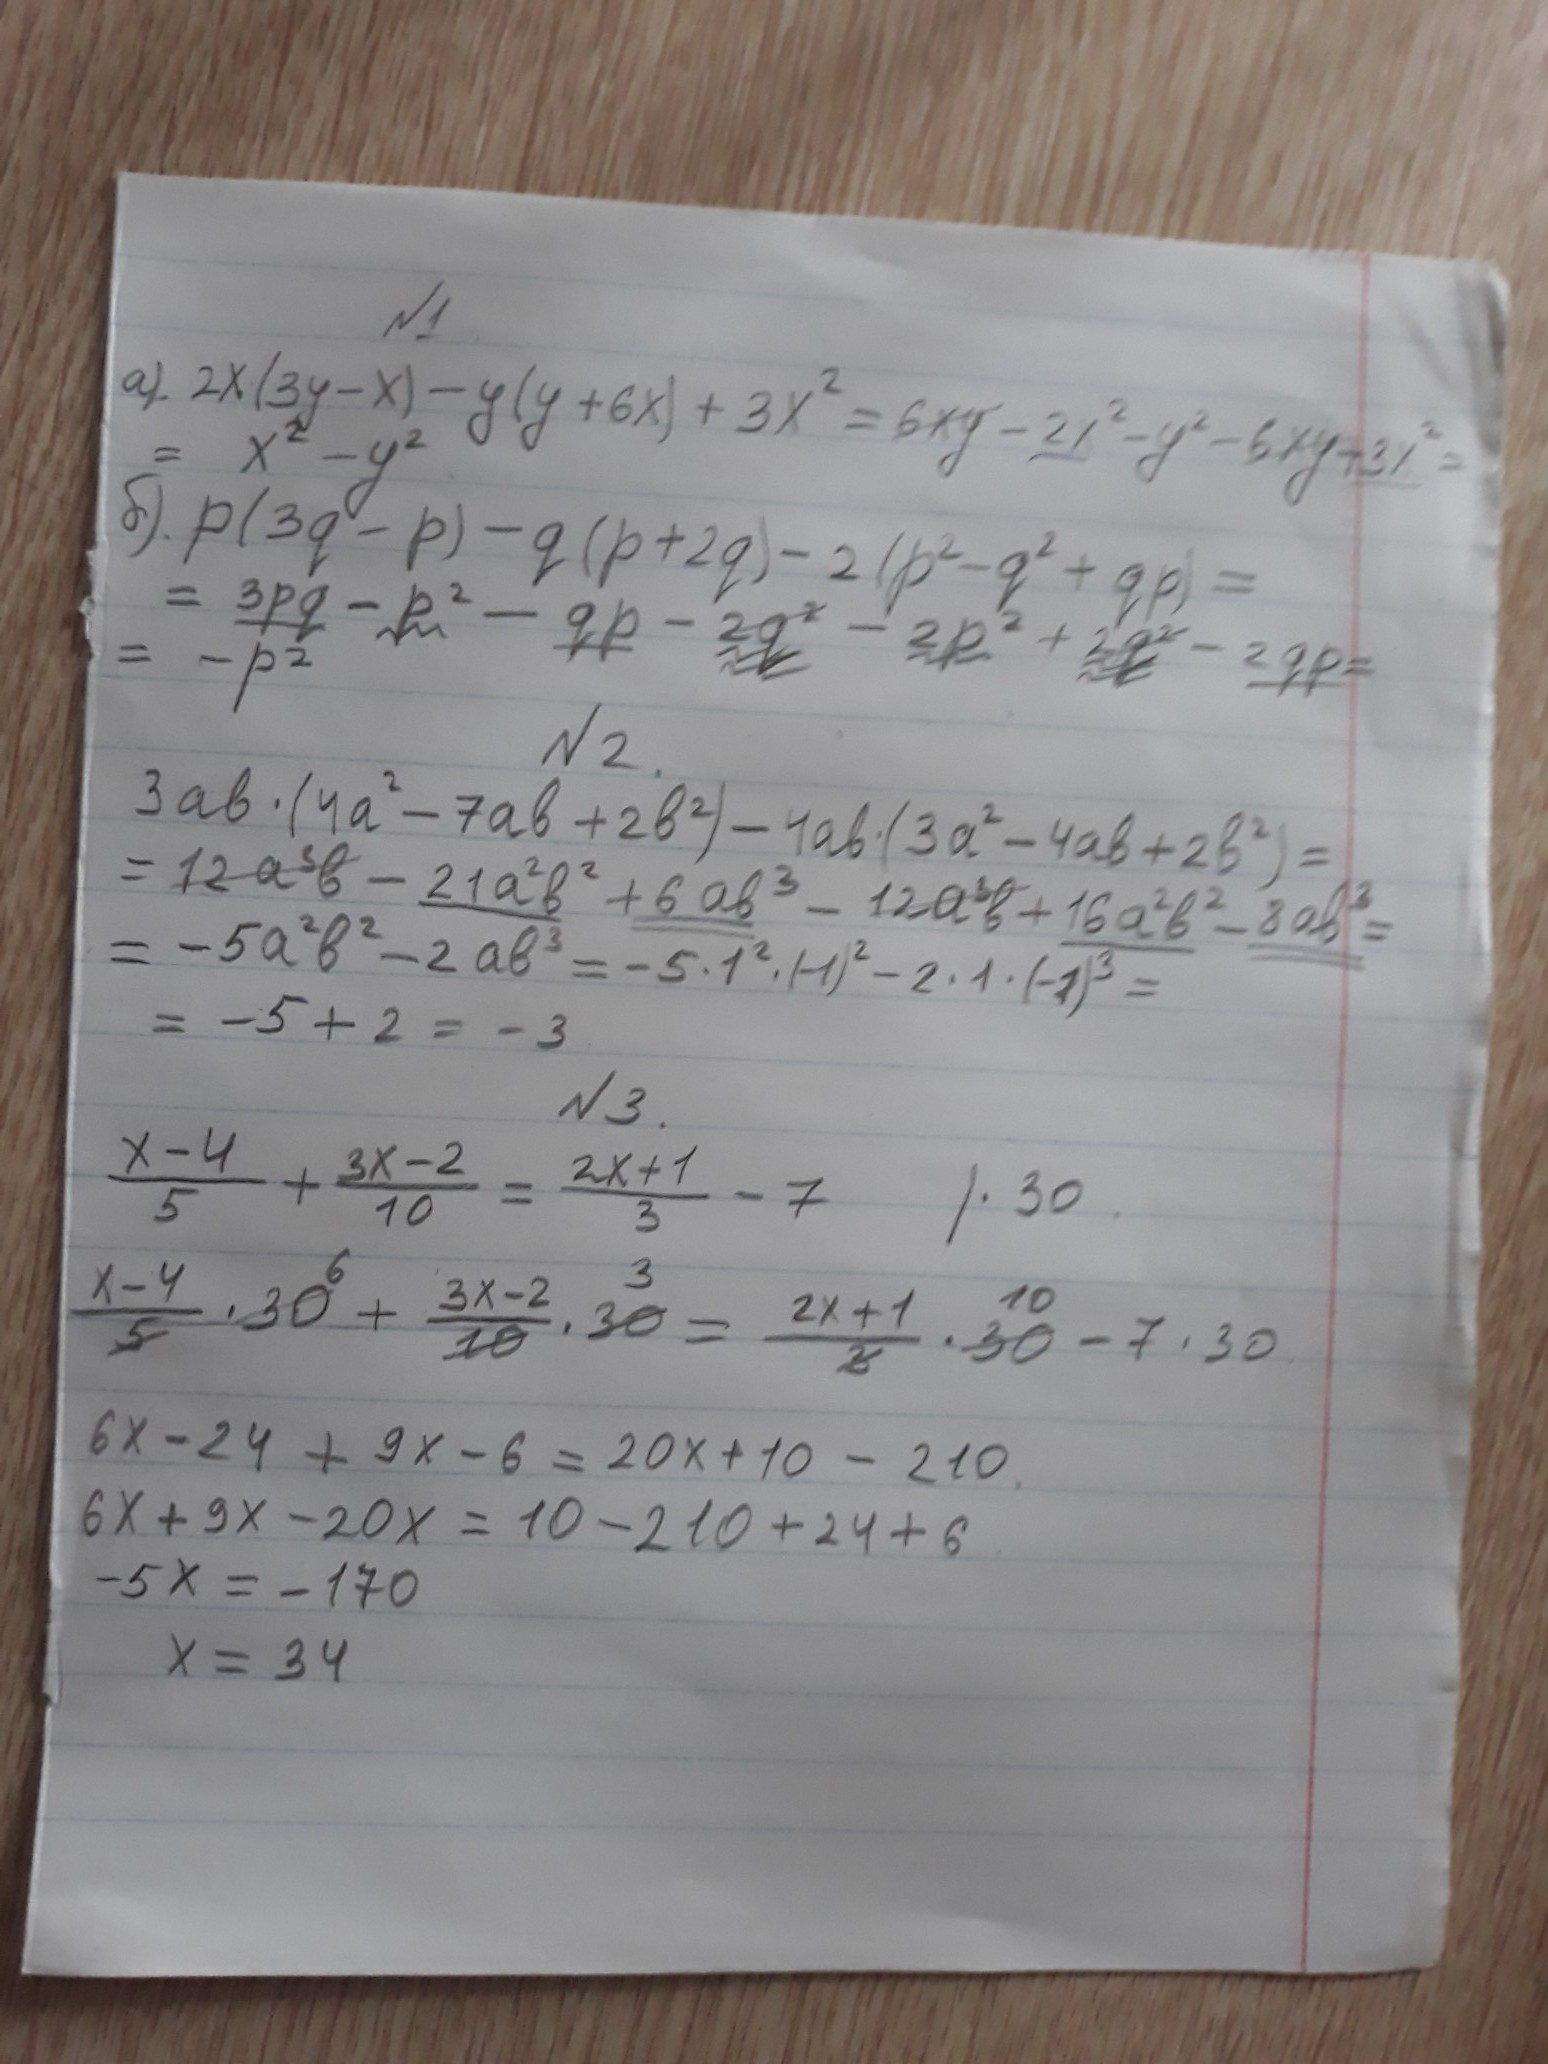 №1
а). 2x(3y-x)-y(y+6x)+3x²=6xy-2x²-y²-6xy+3x²=
= x²-y²
б). p(3q-p)-q(p+2q)-2(p²-q²+qp)=
= 3pq-p²-qp-2q²-2p²+2q²-2qp=
= -p²
№2.
3ab·(4a²-7ab+2b²)-4ab·(3a²-4ab+2b²)=
=12a³b-21a²b²+6ab³-12a³b+16a²b²-8ab³=
= -5a²b²-2ab³=-5·1²·(-1)²-2·1·(-1)³=
= -5+2=-3
№3.
(x-4)/5 + (3x-2)/10 = (2x+1)/3 - 7 /·30
(x-4)/5 · 30 6 + (3x-2)/10 · 30 3 = (2x+1)/3 · 30 10 - 7·30
6x-24+9x-6=20x+10-210.
6x+9x-20x=10-210+24+6
-5x=-170
x=34